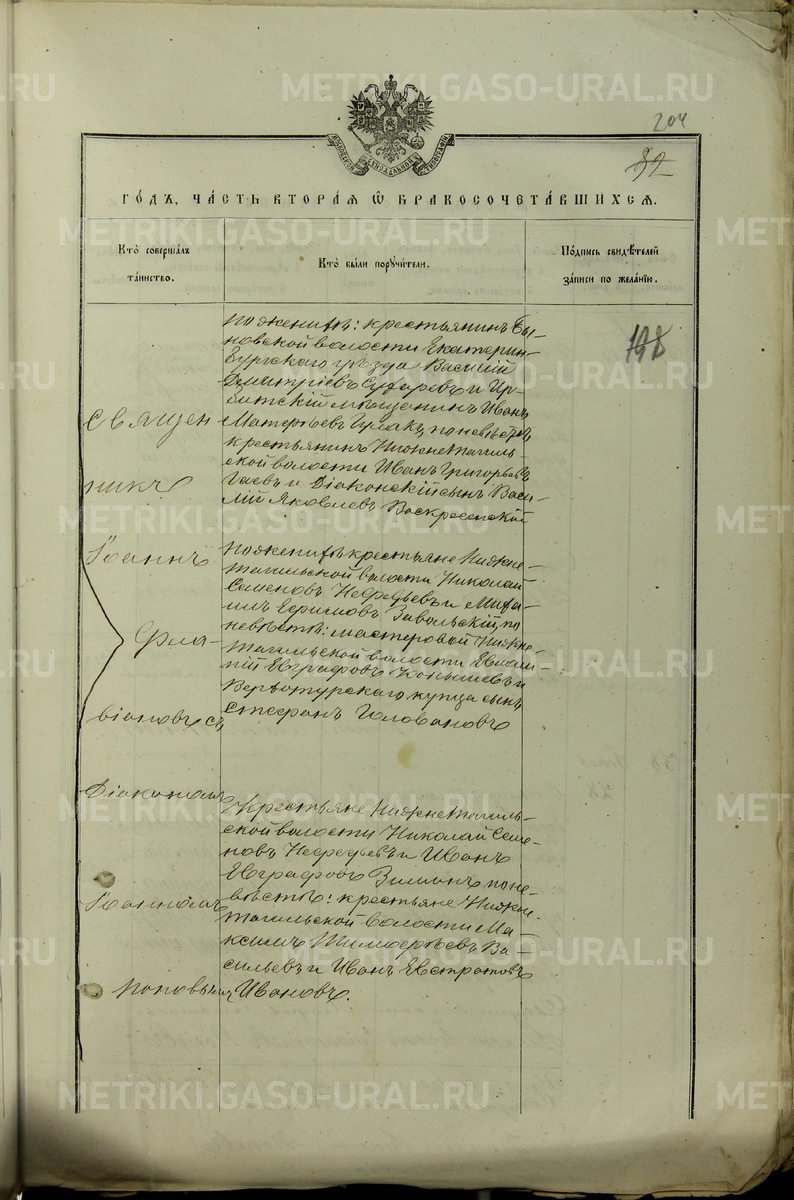 204
32
МОСКОВСКОЙ СѴНОДАЛЬНОЙ ТИПОГРАФІИ
ГОДЪ, ЧАСТЬ ВТОРАЯ Ѡ БРАКОСОЧЕТАВШИХСЯ.
Кто совершалъ
таинство.
Кто были поручители.
Подпись свидѣтелей
записи по желанію.
198
Священ
никъ
Іоаннъ
Фла-
віановъ съ
Діакономъ
Іоанномъ
Поповымъ
по женихѣ: крестьянинъ Бы-
новской волости Екатерин-
бургскаго уѣзда Василій
Димитріевъ Сухаревъ и Ир-
битскій мѣщанинъ Иванъ
Матѳеевъ по невѣстѣ,
крестьянинъ Нижнетагиль-
ской волости Иванъ Григорьевъ
Гаевъ и Діаконскій сынъ Васи-
лій Яковлевъ Воскресенскій
по женихѣ крестьяне Нижне-
тагильской волости Николай
Семеновъ Нефедьевъ и Миха-
илъ Ефимовъ Завольскій, по
невѣстѣ: мастеровой Нижне-
тагильской волости Евлам-
пій Евграфовъ Конышевъ и
Верхотурскаго купца сынъ
Стефанъ Головановъ
Крестьяне Нижнетагиль-
ской волости Николай Семе-
новъ Нефедьевъ и Иванъ
Евграфовъ Зиминъ по не-
вѣстѣ: крестьяне Нижне-
тагильской волости Ма-
ксимъ Тимофеевъ Ва-
сильевъ и Иванъ Евстратовъ
Ивановъ.
METRIKI.GASO-URAL.RU